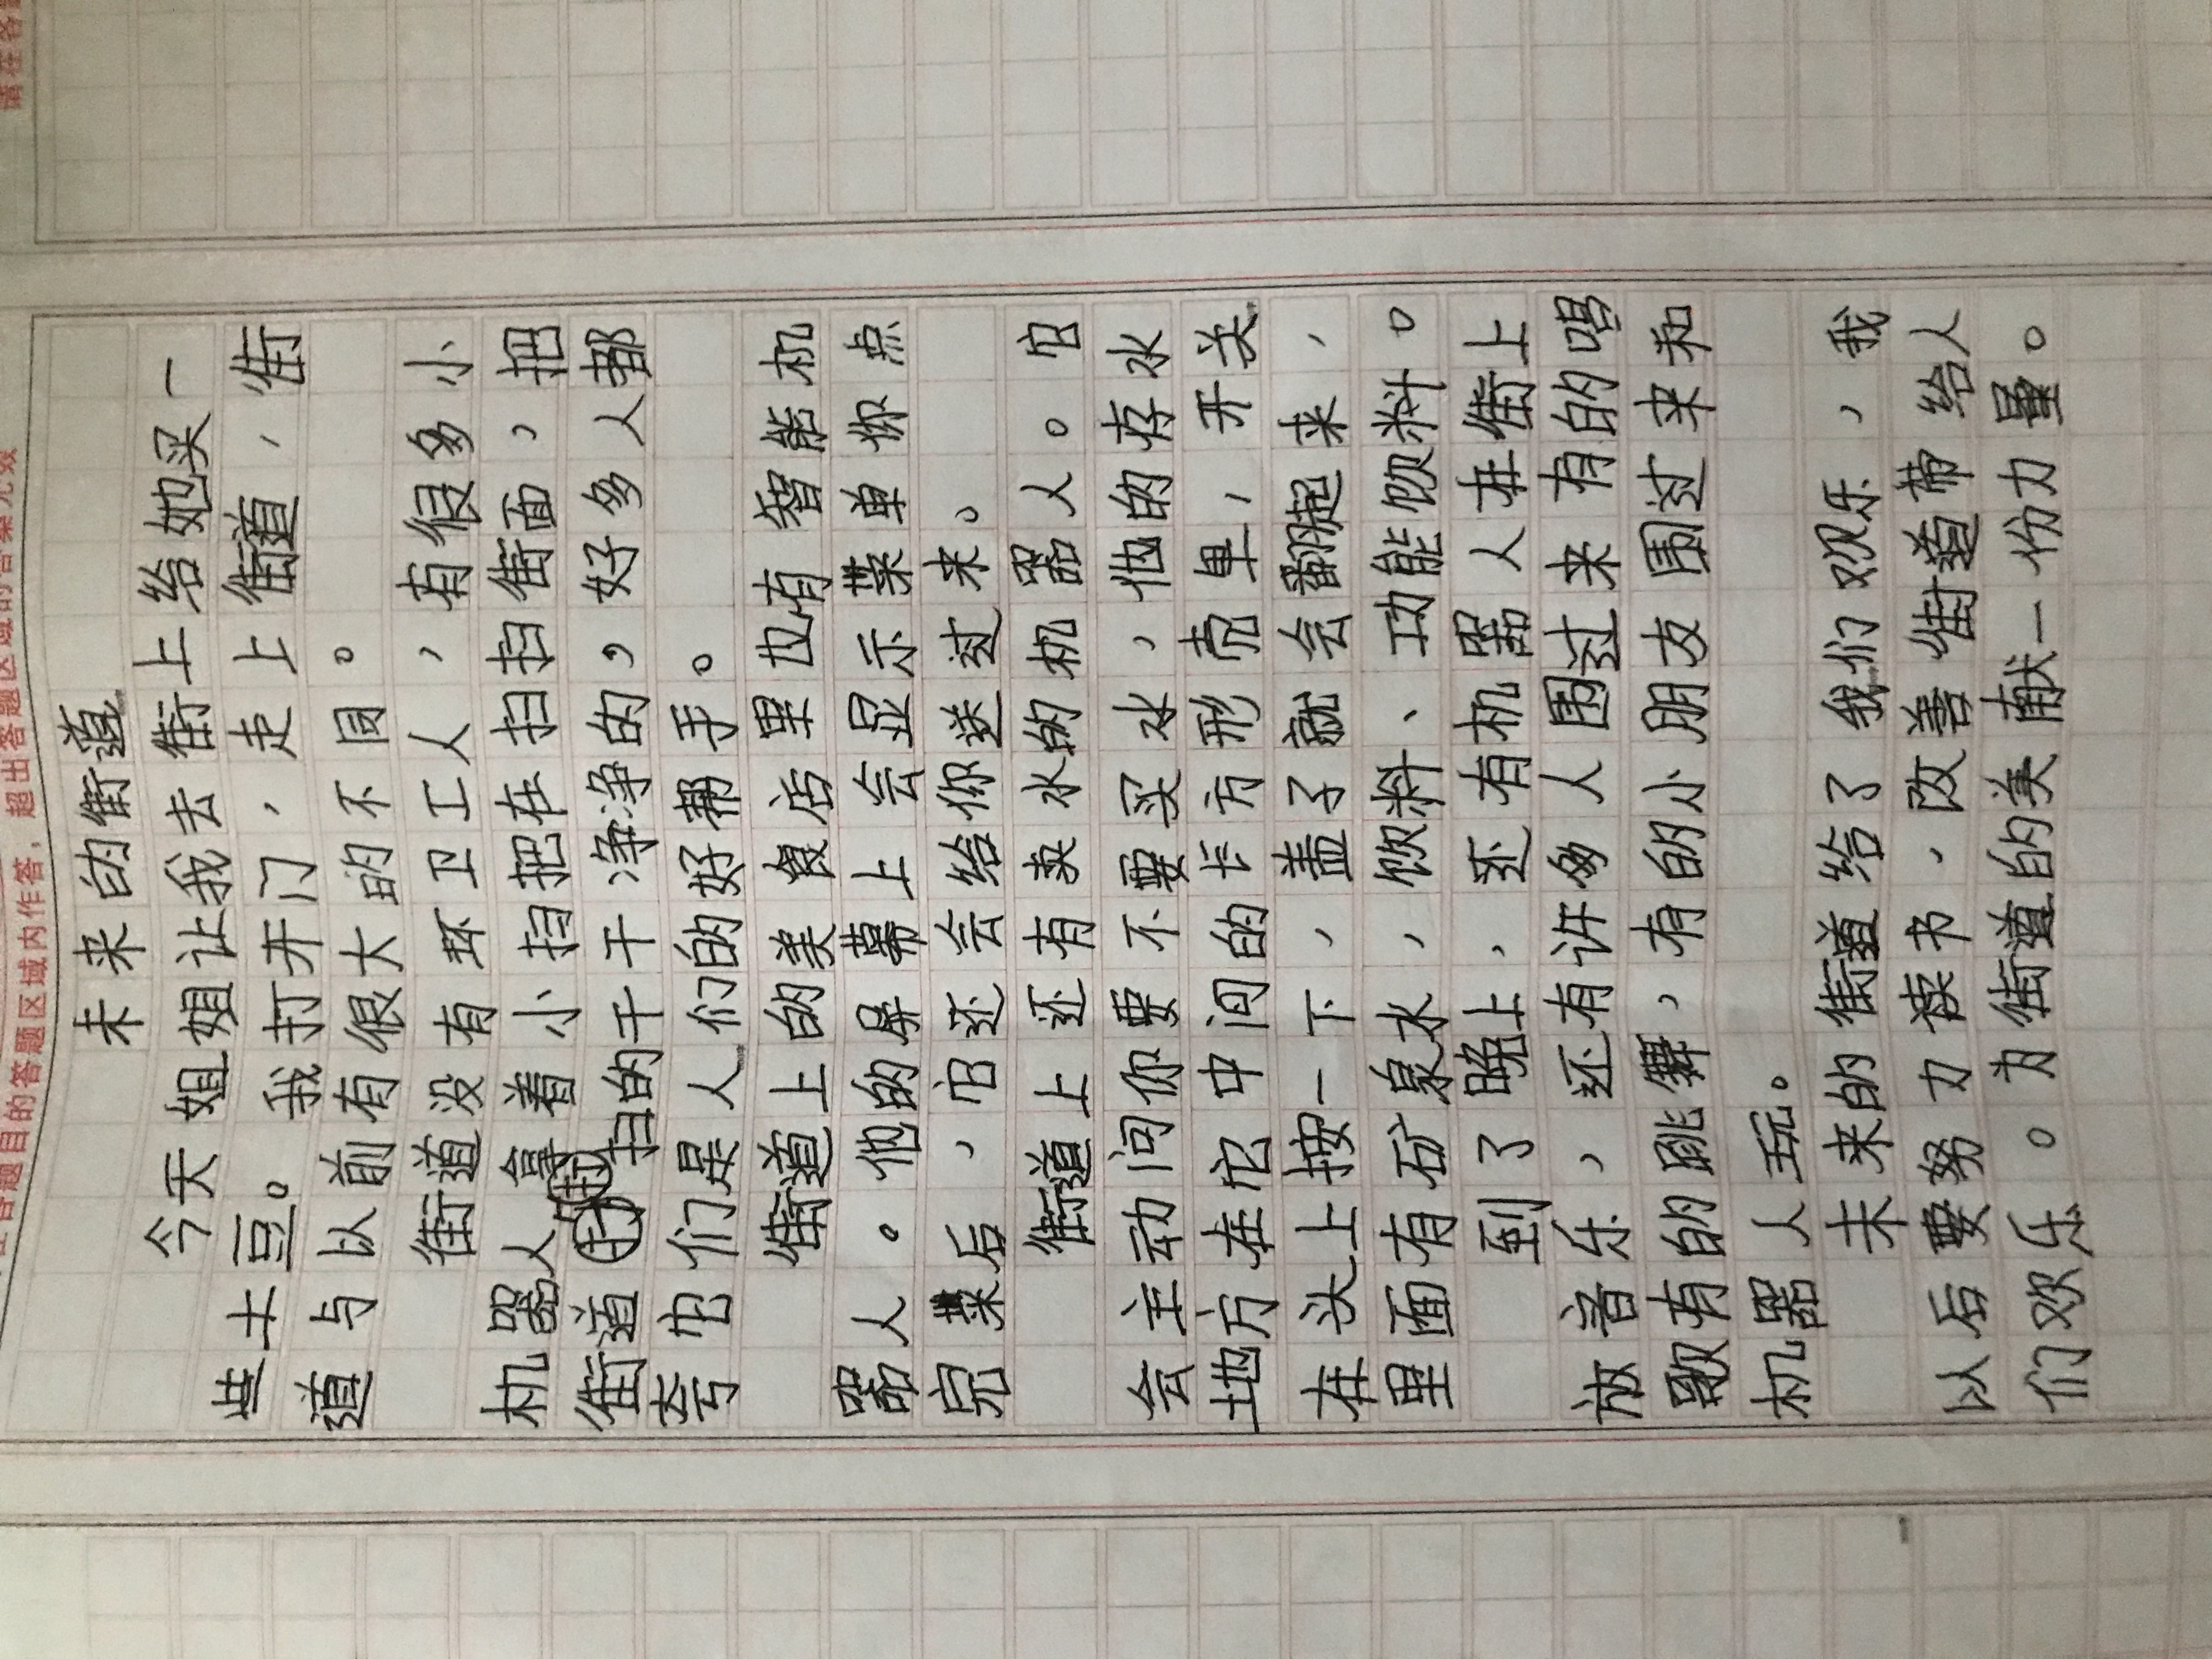 未来的街道
今天姐姐让我去街上给她买一
些土豆。我打开门，走上街道，街
道与以前有很大的不同。
街道没有环卫工人，有很多小
机器人拿着小扫把在扫扫街面，把
街道扫的干干净净的，好多人都
夸它们是人们的好帮手。
街道上的美食店里也有智能机
器人。他的屏幕上会显示菜单你点
完菜后，它还会给你送过来。
街道上还有卖水的机器人。它
会主动问你要不要买水，他的存水
地方在它中间的长方形壳里，开头
在头上按一下，盖子就会翻起来，
里面有矿泉水，饮料、功能饮料。
到了晚上，还有机器人在街上
放音乐，还有许多人围过来有的唱
歌有的跳舞，有的小朋友围过来和
机器人玩。
未来的街道给了我们欢乐，我
以后要努力读书，改善街道带给人
们欢乐。为街道的美献一份力量。